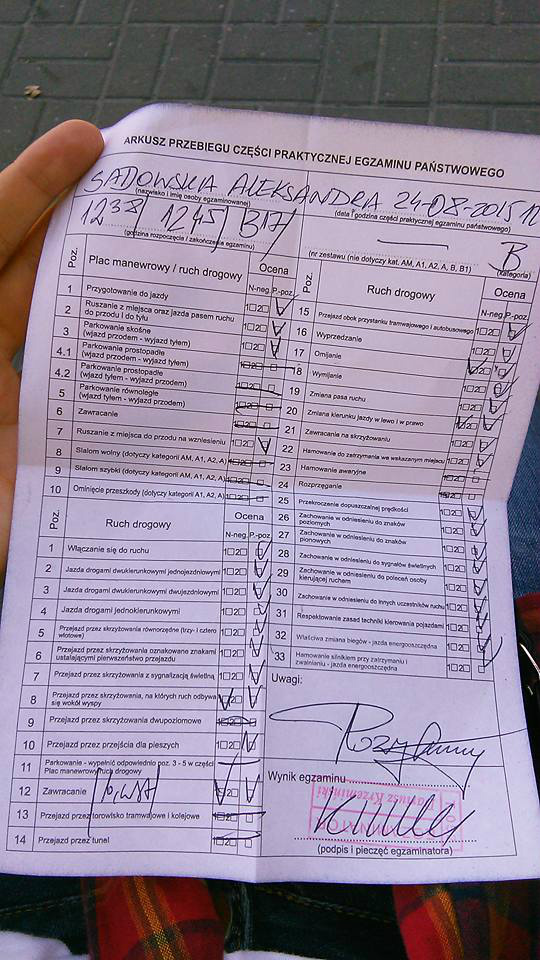 ARKUSZ PRZEBIEGU CZĘŚCI PRAKTYCZNEJ EGZAMINU PAŃSTWOWEGO
SADOWSKA ALEKSANDRA 24-08-2015 12
(nazwisko i imię osoby egzaminowanej)
(data i godzina części praktycznej egzaminu państwowego)
12 38 / 12 45 / B17 /
(godzina rozpoczęcia / zakończenia egzaminu)
B
(nr zestawu (nie dotyczy kat. AM, A1, A2, A, B, B1)
(kategoria)
Poz.
Plac manewrowy / ruch drogowy
Ocena
N-neg. P.-poz.
1 Przygotowanie do jazdy 1 2
2 Ruszanie z miejsca oraz jazda pasem ruchu
do przodu i do tyłu 1 2
3 Parkowanie skośne
(wjazd przodem - wyjazd tyłem) 1 2
4.1 Parkowanie prostopadłe
(wjazd przodem - wyjazd tyłem) 1 2
4.2 Parkowanie prostopadłe
(wjazd tyłem - wyjazd przodem) 1 2
5 Parkowanie równoległe
(wjazd tyłem - wyjazd przodem) 1 2
6 Zawracanie 1 2
7 Ruszanie z miejsca do przodu na wzniesieniu 1 2
8 Slalom wolny (dotyczy kategorii AM, A1, A2, A) 1 2
9 Slalom szybki (dotyczy kategorii AM, A1, A2, A) 1 2
10 Ominięcie przeszkody (dotyczy kategorii A1, A2, A) 1 2
Poz.
Ruch drogowy
Ocena
N-neg. P.-poz.
1 Włączanie się do ruchu 1 2
2 Jazda drogami dwukierunkowymi jednojezdniowymi 1 2
3 Jazda drogami dwukierunkowymi dwujezdniowymi 1 2
4 Jazda drogami jednokierunkowymi 1 2
5 Przejazd przez skrzyżowania równorzędne (trzy- i cztero
wlotowe) 1 2
6 Przejazd przez skrzyżowania oznakowane znakami
ustalającymi pierwszeństwo przejazdu 1 2
7 Przejazd przez skrzyżowania z sygnalizacją świetlną 1 2
8 Przejazd przez skrzyżowania, na których ruch odbywa
się wokół wyspy 1 2
9 Przejazd przez skrzyżowania dwupoziomowe 1 2
10 Przejazd przez przejścia dla pieszych 1 2
11 Parkowanie - wypełnić odpowiednio poz. 3 - 5 w części
Plac manewrowy/ruch drogowy
12 Zawracanie 1 2
13 Przejazd przez torowisko tramwajowe i kolejowe 1 2
14 Przejazd przez tunel 1 2
Poz.
Ruch drogowy
Ocena
N-neg. P.-poz.
15 Przejazd obok przystanku tramwajowego i autobusowego 1 2
16 Wyprzedzanie 1 2
17 Omijanie 1 2
18 Wymijanie 1 2
19 Zmiana pasa ruchu 1 2
20 Zmiana kierunku jazdy w lewo i w prawo 1 2
21 Zawracanie na skrzyżowaniu 1 2
22 Hamowanie do zatrzymania we wskazanym miejscu 1 2
23 Hamowanie awaryjne 1 2
24 Rozprzęganie 1 2
25 Przekroczenie dopuszczalnej prędkości 1 2
26 Zachowanie w odniesieniu do znaków
poziomych 1 2
27 Zachowanie w odniesieniu do znaków
pionowych 1 2
28 Zachowanie w odniesieniu do sygnałów świetlnych 1 2
29 Zachowanie w odniesieniu do poleceń osoby
kierującej ruchem 1 2
30 Zachowanie w odniesieniu do innych uczestników ruchu 1 2
31 Respektowanie zasad techniki kierowania pojazdami 1 2
32 Właściwa zmiana biegów - jazda energooszczędna 1 2
33 Hamowanie silnikiem przy zatrzymaniu i
zwalnianiu - jazda energooszczędna 1 2
Uwagi:
Wynik egzaminu
EGZAMINATOR
Dariusz Krzemiński
(podpis i pieczęć egzaminatora)